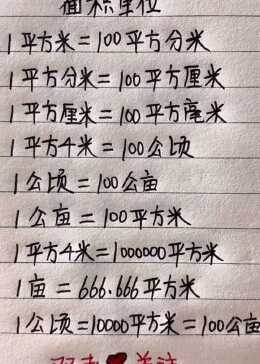 面积单位
1平方米=100平方分米
1平方分米=100平方厘米
1平方厘米=100平方毫米
1平方千米=100公顷
1公顷=100公亩
1公亩=100平方米
1平方千米=1000000平方米
1亩=666.666平方米
1公顷=10000平方米=100公亩
双击❤关注